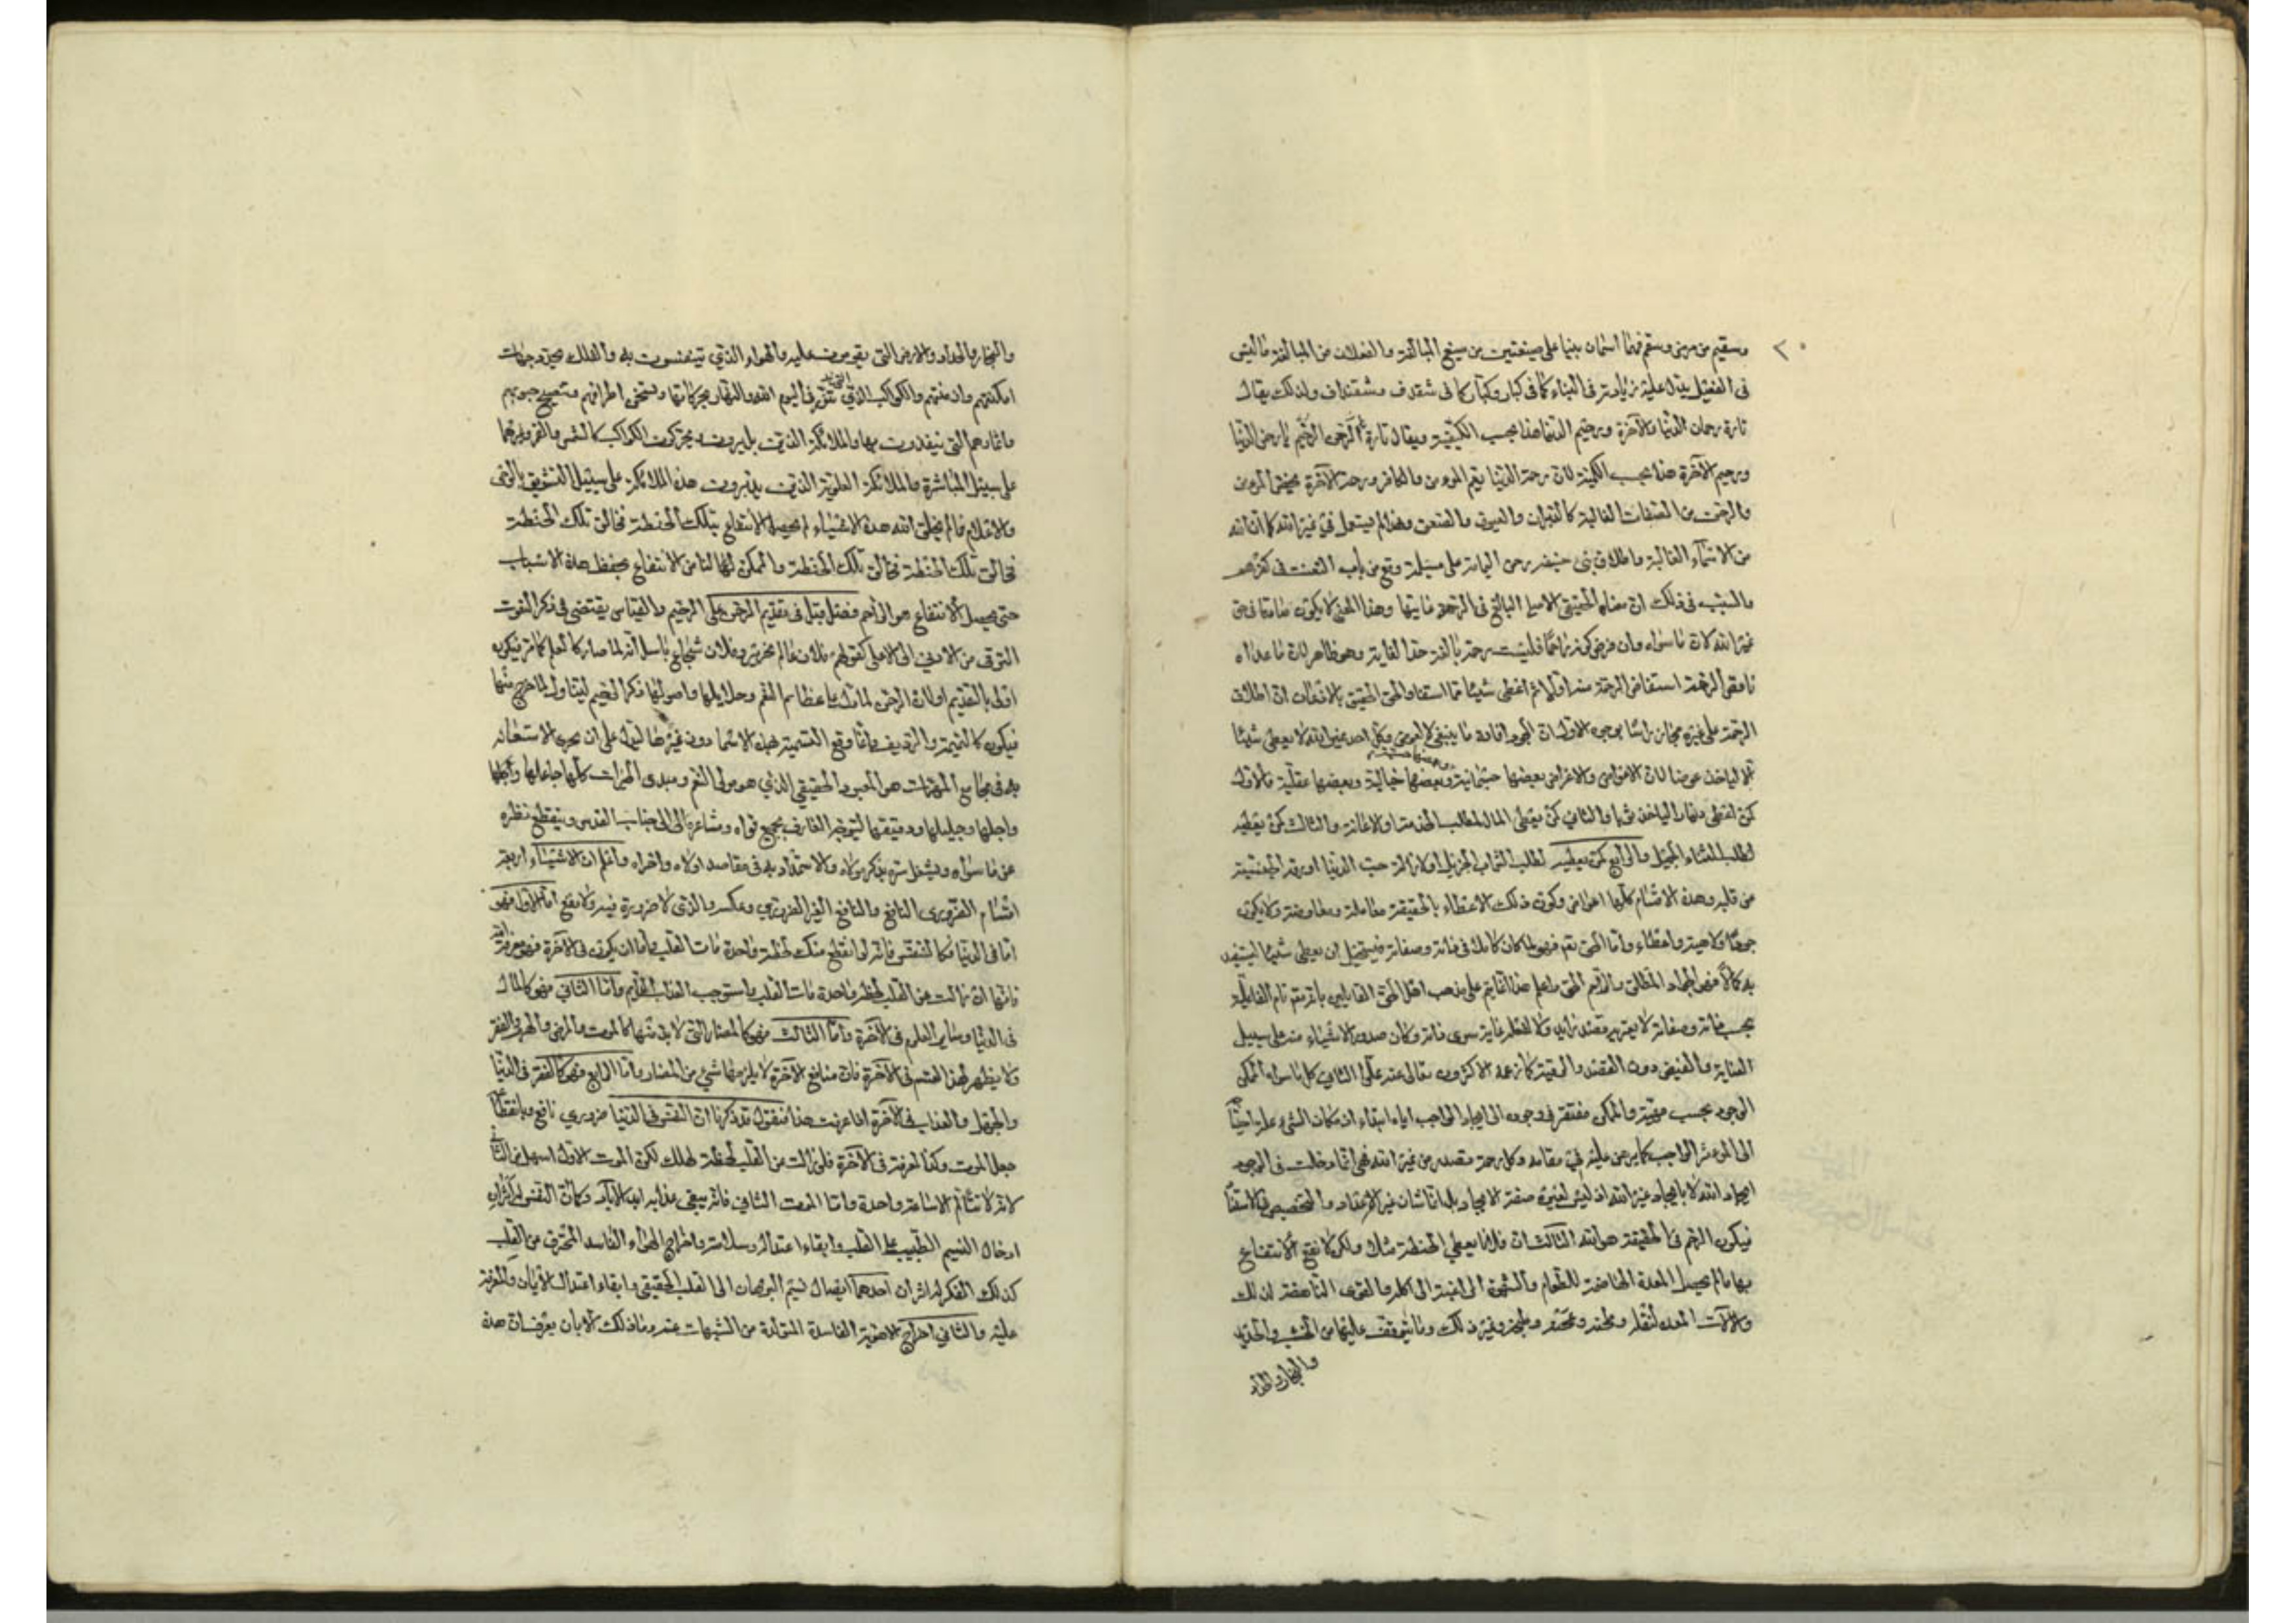 ٢٠
وسقيم من مرض وسقم فهما اسمان بنيا على صيغتين من صيغ المبالغة والفعلان من المبالغة ما ليس
فى الفعيل يدل عليه زيادته فى البناء كما فى كبار وكبار كما فى شقدف وشقنداف ولذلك يقال
تارة رحمان الدنيا والآخرة ورحيم الدنيا هذا بحسب الكيفية ويقال تارة الرحمن الرحيم يا رحمن الدنيا
ورحيم الآخرة هذا بحسب الكمية لان رحمة الدنيا يعم المومن والكافر ورحمة الآخرة يختص المومن
والرحمن من الصفات الغالبة كالدبران والعيوق والصعق وهذا لم يستعمل فى غير الله كما ان الله
من الاسماء الغالبة واطلاق بنى حنيفة رحمن اليمامة على مسيلمة وقع من باب التعنت فى كفرهم
والسبب فى ذلك ان معناه الحقيقى الاصلى البالغ فى الرحمة غايتها وهذا المعنى لا يكون صادقا فى حق
غير الله لان ما سواه وان فرض كونه راحما فليست رحمة بالغة حد الغاية وهو ظاهر لان ما عداه
ناقص الرحمة استفاض الرحمة منه اولا ثم اعطى شيئا مما استفاد والحق الحقيق بالاذعان ان اطلاق
الرحمة على غيره مجاز راسا بوجوه الاول ان الجود افادة ما ينبغى لا لعوض وكل احد غير الله لا يعطى شيئا
الا لياخذ عوضا لان الاعواض والاغراض بعضها جسمانية وبعضها حسية وبعضها خيالية وبعضها عقلية فالاول
كمن اعطى دينارا لياخذ ثوبا والثانى كمن يعطى المال لطلب الخدمة او الاعانة والثالث كمن يعطيه
لطلب الثناء الجميل والرابع كمن يعطيه لطلب الثواب الجزيل او لازالة حب الدنيا او رقة الجنسية
من قلبه وهذه الاقسام كلها اعواض فيكون ذلك الاعطاء بالحقيقة معاملة ومعاوضة ولا يكون
جودا ولا هبة واعطاء واما الحق تعم فهو لما كان كاملا فى ذاته وصفاته فيستحيل ان يعطى شيئا ليستفيد
به كمالا فهو الجواد المطلق والراحم الحق واعلم هذا انما يتم على مذهب اهل الحق القائلين بانه تعم تام الفاعلية
بحسب ذاته وصفاته لا يعتريه قصد زايد ولا لفعله غاية سوى ذاته وكان صدور الاشياء منه على سبيل
العناية والفيض دون القصد والروية كما زعمه الاكثرون تعالى عنه علوا الثانى كل ما سواه ممكن
الوجود بحسب مهيته والممكن مفتقر فى وجوده الى ايجاد الواجب اياه ابتداء اذ مكان الشىء علة احتياجه
الى الموثر الواجب كما برهن عليه فى مقامه وكل رحمة تصدر من غير الله فهى انما دخلت فى الوجود
بايجاد الله لا بايجاد غير الله اذ ليس لغيره صفة الايجاد بل انما شان غيره الاعداد والتخصيص فى الاستفاضة
فيكون الراحم فى الحقيقة هو الله الثالث ان فلانا يعطى الحنطة مثلا ولكن لا يقع الانتفاع
بها ما لم يحصل المعدة الهاضمة للطعام والشهوة الراغبة الى اكله والقوى الناهضة لذلك
والآلات المعدة لنقله وطحنه وعجنه وطبخه وغير ذلك وما يتوقف عليها من الخشب والحديد
والنجار والحداد
والنجار والحداد والارض التى يقومون عليه والهواء الذى يتنفسون به والفلك يحدد جهات
امكنتهم وازمنتهم والكواكب التى تنور فى اليوم الليل والنهار بحركاتها وتسخن اطرافهم وتنضج حبوبهم
واثمارهم التى يتغذون بها والملائكة الذين يدبرون ويحركون الكواكب كالشمس والقمر وغيرهما
على سبيل المباشرة والملائكة العلوية الذين يدبرون هذه الملائكة على سبيل التشويق بالوحى
والاعلام فما لم يخلق الله هذه الاشياء لم يحصل الانتفاع بتلك الحنطة فخالق تلك الحنطة
فخالق تلك الحنطة فخالق تلك الحنطة والممكن لها لنا من الانتفاع بحفظ هذه الاسباب
حتى يحصل الانتفاع هو الراحم فصل قيل فى تقديم الرحمن على الرحيم والقياس يقتضى فى ذكر النعوت
الترقى من الادنى الى الاعلى كقولهم فلان عالم نحرير وفلان شجاع باسل انه لما صار كالعلم كما مر فيكون
اولى بالتقديم او لان الرحمن لما دل على عظائم النعم وجلايلها واصولها ذكر الرحيم ليتناول ما خرج منها
فيكون كالتتمة والرديف وانما وقع التسمية بهذه الاسماء دون غيرها ليدل على ان يحرى الاستعانة
به فى مجامع المهمات هو المعبود الحقيقى الذى هو مولى النعم ومبدى الخيرات كلها عاجلها وآجلها
واجلها وجليلها ودقيقها ليتوجه العارف بجميع قواه ومشاعره الى جناب القدس وينقطع نظره
عن ما سواه ويشغل سره بذكر مولاه والاستمداد به فى مقاصد اولاه واخراه واعلم ان الاشياء اربعة
اقسام الضرورى النافع والنافع الغير الضرورى وعكسه والذى لا ضرورة فيه ولا نفع اما الاول فهو
اما فى الدنيا فكالتنفس فانه لو انقطع منك لحظة واحدة مات القلب واما ان يكون فى الآخرة فهو معرفة الله
فانها ان زالت عن القلب لحظة واحدة مات القلب واستوجب العذاب الدايم واما الثانى فهو كالمال
فى الدنيا وساير العلوم فى الآخرة واما الثالث فهو كالمضار التى لا بد منها كالموت والمرض والهرم والفقر
ولا يظهر لهذا القسم فى الآخرة فان منافع الآخرة لا يلزمها شىء من المضار واما الرابع فهو كالفقر فى الدنيا
والجهل والعذاب فى الآخرة اذا عرفت هذا فنقول قد ذكرنا ان النفس فى الدنيا ضرورى نافع وبانقطاعه
يحصل الموت وكذا المعرفة فى الآخرة فلو زالت من القلب لحظة لهلك لكن الموت الاول اسهل من الثانى
لانه لا يتالم الا ساعة واحدة واما الموت الثانى فانه يبقى عذابه ابد الآباد وكما ان التنفس له اثران
ادخال النسيم الطيب على القلب وابقاء اعتداله وسلامته واخراج الهواء الفاسد المحترق من القلب
كذلك الفكر له اثران احدهما ايصال نسيم البرهان الى القلب الحقيقى وابقاء اعتدال الايمان والمعرفة
عليه والثانى اخراج الاهوية الفاسدة المتولدة من الشبهات عنه وما ذلك الا بان يعرف ان هذه